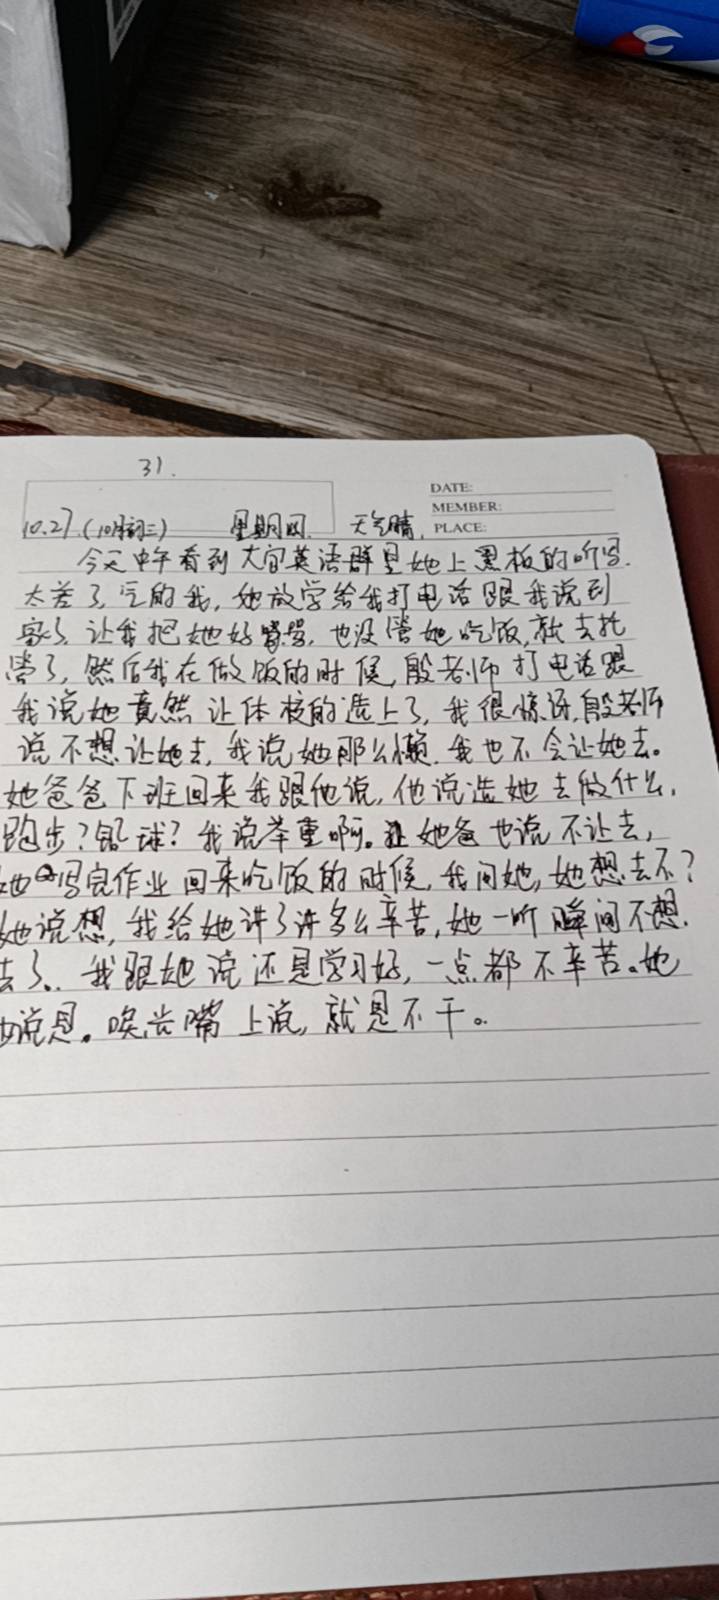 31.
DATE:
MEMBER:
10.27.(10月初三) 星期四. 天气晴. PLACE:
今天中午看到大宫英语群里她上黑板的听写.
太差了,气的我,她放学给我打电话跟我说到
家了,让我把她好,也没管她吃饭,就去托
管了,然后我在做饭的时候,殷老师打电话跟
我说她竟然让体校的选上了,我很惊讶,殷老师
说不想让她去,我说她那么懒.我也不会让她去。
她爸爸下班回来我跟他说,他说选她去做什么,
跑步?铅球?我说举重啊。她爸也说不让去,
她写完作业回来吃饭的时候,我问她,她想去不?
她说想,我给她讲了许多么辛苦,她一听瞬间不想.
去了.我跟她说还是学习好,一点都不辛苦。她
也说是。唉,光嘴上说,就是不干。